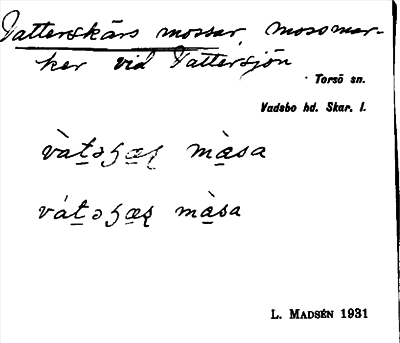 Vatterskärs mossar, mossmar-
ker vid Vattersjön
Torsö sn.
Vadsbo hd. Skar. l.
mà̱sa
mà̱sa
L. MADSÉN 1931